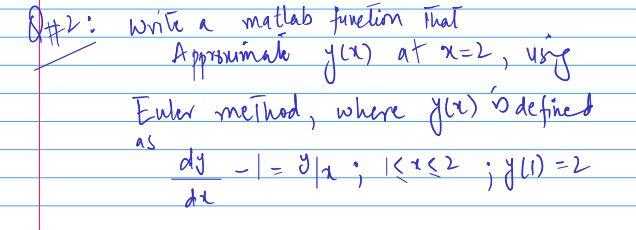 Q#2: Write a matlab function that
Approximate y(x) at x=2, using
Euler method, where y(x) is defined
as
dy/dx - 1 = y/x ; 1 ≤ x ≤ 2 ; y(1) = 2